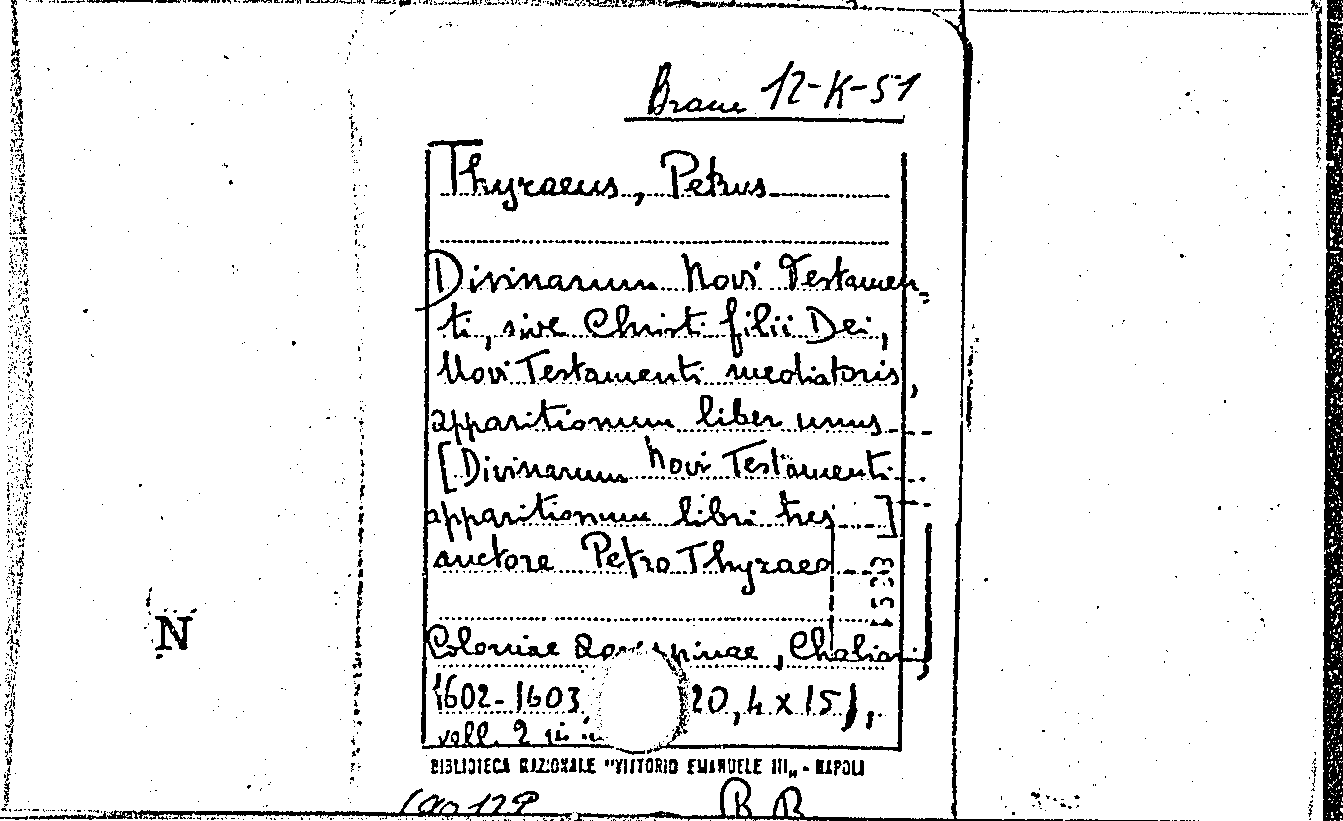 Branc 12-K-51
Thyraeus, Petrus
Divinarum Novi Testamen-
ti, sive Christi filii Dei,
Novi Testamenti mediatoris,
apparitionum liber unus
[Divinarum Novi Testamenti
apparitionum libri tres]
auctore Petro Thyraeo
1533
Coloniae , Choliani,
1602-1603, 20,4 x 15),
voll. 2
BIBLIOTECA NAZIONALE "VITTORIO EMANUELE III„ - NAPOLI
N